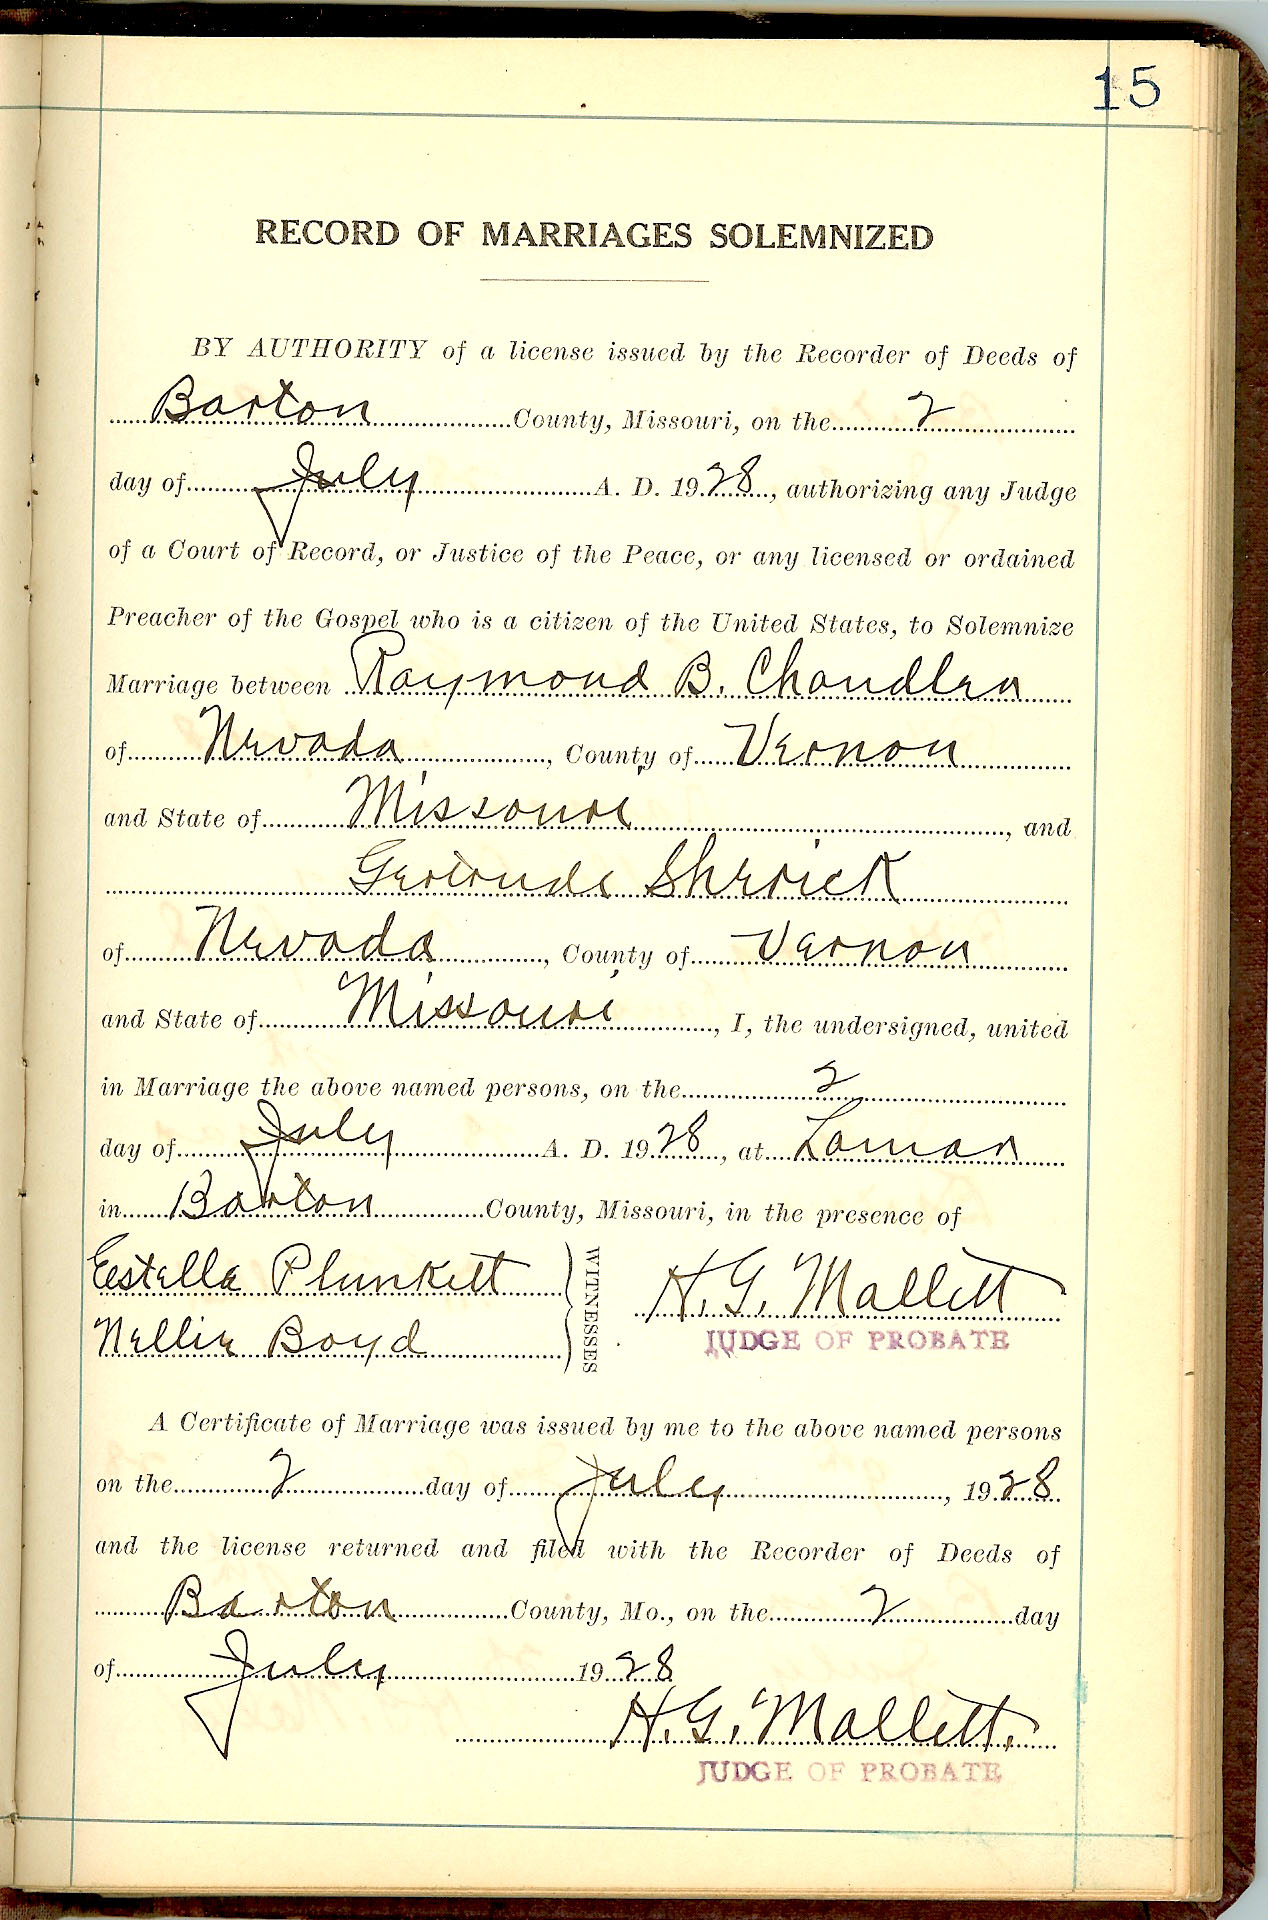 15
RECORD OF MARRIAGES SOLEMNIZED
BY AUTHORITY of a license issued by the Recorder of Deeds of
Barton County, Missouri, on the 2
day of July A. D. 1928, authorizing any Judge
of a Court of Record, or Justice of the Peace, or any licensed or ordained
Preacher of the Gospel who is a citizen of the United States, to Solemnize
Marriage between Raymond B. Chandler
of Nevada, County of Vernon
and State of Missouri, and
Gertrude Sherick
of Nevada, County of Vernon
and State of Missouri, I, the undersigned, united
in Marriage the above named persons, on the 2
day of July A. D. 1928, at Lamar
in Barton County, Missouri, in the presence of
Estella Plunkett
Nellie Boyd
WITNESSES
H. G. Mallett
JUDGE OF PROBATE
A Certificate of Marriage was issued by me to the above named persons
on the 2 day of July, 1928
and the license returned and filed with the Recorder of Deeds of
Barton County, Mo., on the 2 day
of July 1928
H. G. Mallett.
JUDGE OF PROBATE